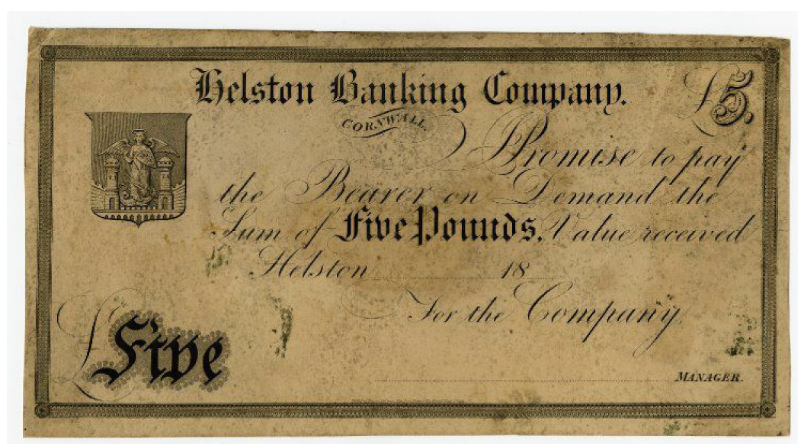 Helston Banking Company. £5.
CORNWALL.
I Promise to pay
the Bearer on Demand the
Sum of Five Pounds. Value received
Helston 18
For the Company
£Five
MANAGER.